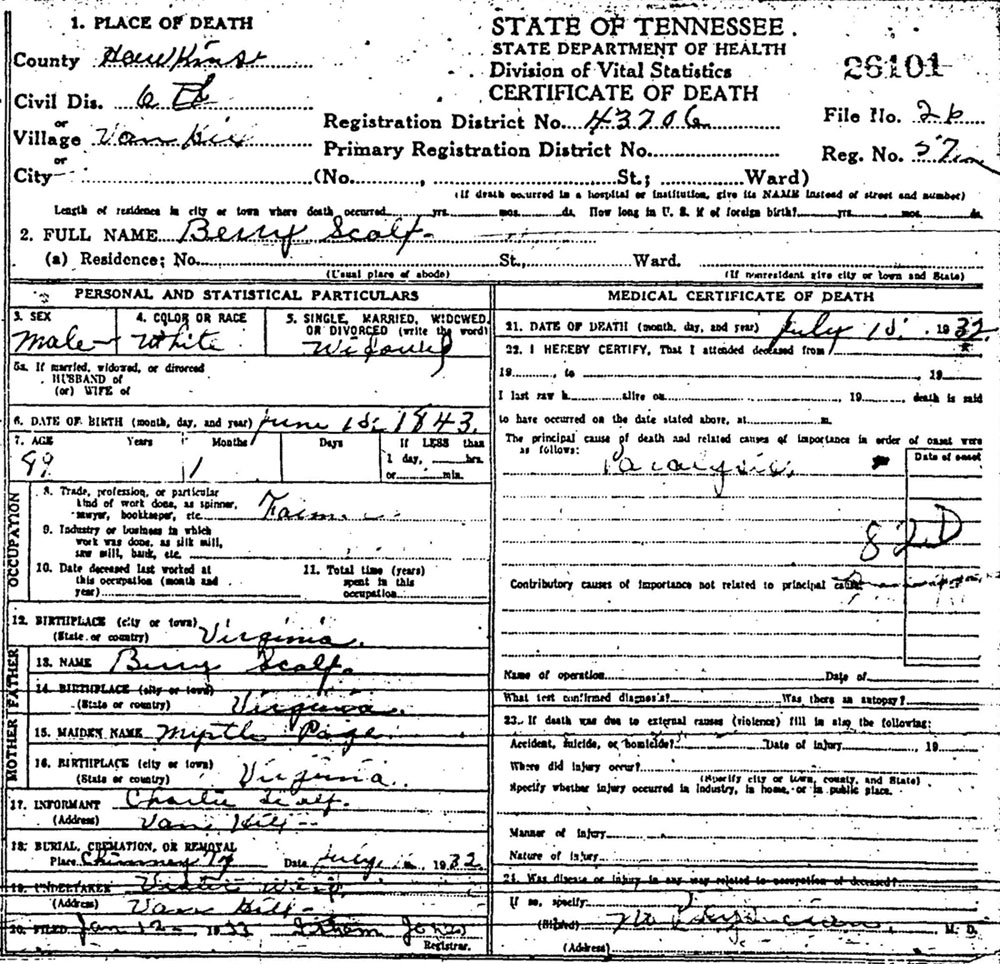 1. PLACE OF DEATH
County Hawkins
Civil Dis. 6 th
or
Village Van Hill
or
City (No. , St.; Ward)
STATE OF TENNESSEE.
STATE DEPARTMENT OF HEALTH
Division of Vital Statistics
CERTIFICATE OF DEATH
Registration District No. 43706
Primary Registration District No.
26101
File No. 26
Reg. No. 57
(If death occurred in a hospital or institution, give its NAME instead of street and number)
Length of residence in city or town where death occurred yrs. mos. ds. How long in U. S. if of foreign birth? yrs. mos. ds.
2. FULL NAME Berry Scalf
(a) Residence; No. St., Ward.
(Usual place of abode) (If nonresident give city or town and State)
PERSONAL AND STATISTICAL PARTICULARS
3. SEX
Male
4. COLOR OR RACE
White
5. SINGLE, MARRIED, WIDOWED, OR DIVORCED (write the word)
Widowed
5a. If married, widowed, or divorced
HUSBAND of
(or) WIFE of
6. DATE OF BIRTH (month, day, and year) June 15, 1843.
7. AGE Years Months Days If LESS than
1 day, hrs.
or min.
89 1
OCCUPATION
8. Trade, profession, or particular
kind of work done, as spinner,
sawyer, bookkeeper, etc.
9. Industry or business in which
work was done, as silk mill,
saw mill, bank, etc.
10. Date deceased last worked at
this occupation (month and
year)
11. Total time (years)
spent in this
occupation
12. BIRTHPLACE (city or town)
(State or country) Virginia.
FATHER
13. NAME Berry Scalf.
14. BIRTHPLACE (city or town)
(State or country) Virginia.
MOTHER
15. MAIDEN NAME Myrtle Paige
16. BIRTHPLACE (city or town)
(State or country) Virginia.
17. INFORMANT Charlie Scalf.
(Address) Van Hill
18. BURIAL, CREMATION, OR REMOVAL
Place Chimney Date July 1932
19. UNDERTAKER
(Address) Van Hill
20. FILED Jan 12 1933 Jones
Registrar.
MEDICAL CERTIFICATE OF DEATH
21. DATE OF DEATH (month, day, and year) July 15, 1932
22. I HEREBY CERTIFY, That I attended deceased from
19 , to , 19
I last saw h alive on , 19 , death is said
to have occurred on the date stated above, at m.
The principal cause of death and related causes of importance in order of onset were
as follows:
Date of onset
Paralysis.
82D
Contributory causes of importance not related to principal cause
Name of operation Date of
What test confirmed diagnosis? Was there an autopsy?
23. If death was due to external causes (violence) fill in also the following:
Accident, suicide, or homicide? Date of injury , 19
Where did injury occur?
(Specify city or town, county, and State)
Specify whether injury occurred in industry, in home, or in public place.
Manner of injury
Nature of injury
24. Was disease or injury in any way related to occupation of deceased?
If so, specify
(Signed) No Physician, M. D.
(Address)